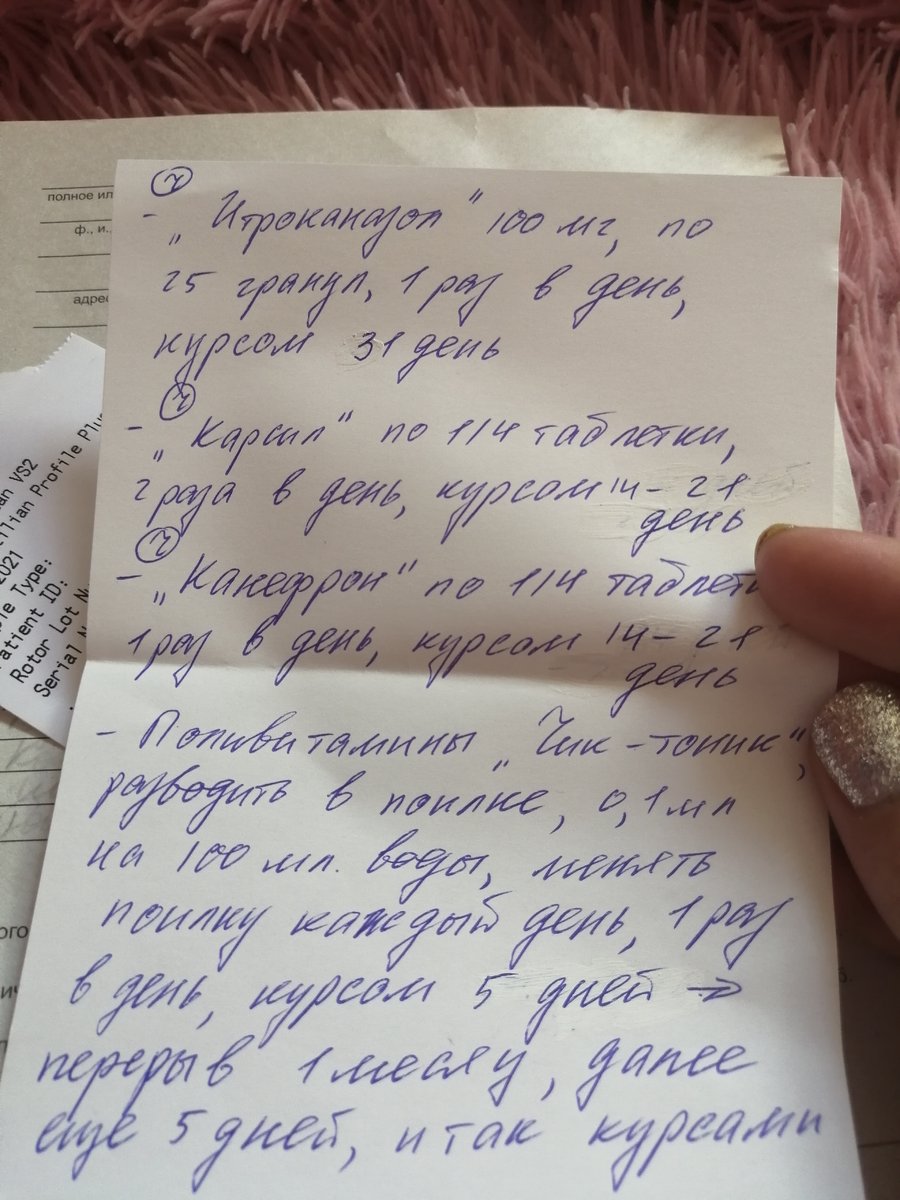 полное
ф., и.,
адрес
ч
- „Итроканазол" 100 мг, по
25 гранул, 1 раз в день,
курсом 31 день
ч
- „Карсил" по 1/4 таблетки,
2 раза в день, курсом 14-21
день
ч
- „Канефрон" по 1/4
1 раз в день, курсом 14-21
день
- Поливитамины „Чик-тоник",
разводить в поилке, 0,1 мл
на 100 мл. воды, менять
поилку каждый день, 1 раз
в день, курсом 5 дней →
перерыв 1 месяц, далее
еще 5 дней, и так курсами
VS2
Profile
2021
Type:
Patient ID:
Rotor Lot
Serial